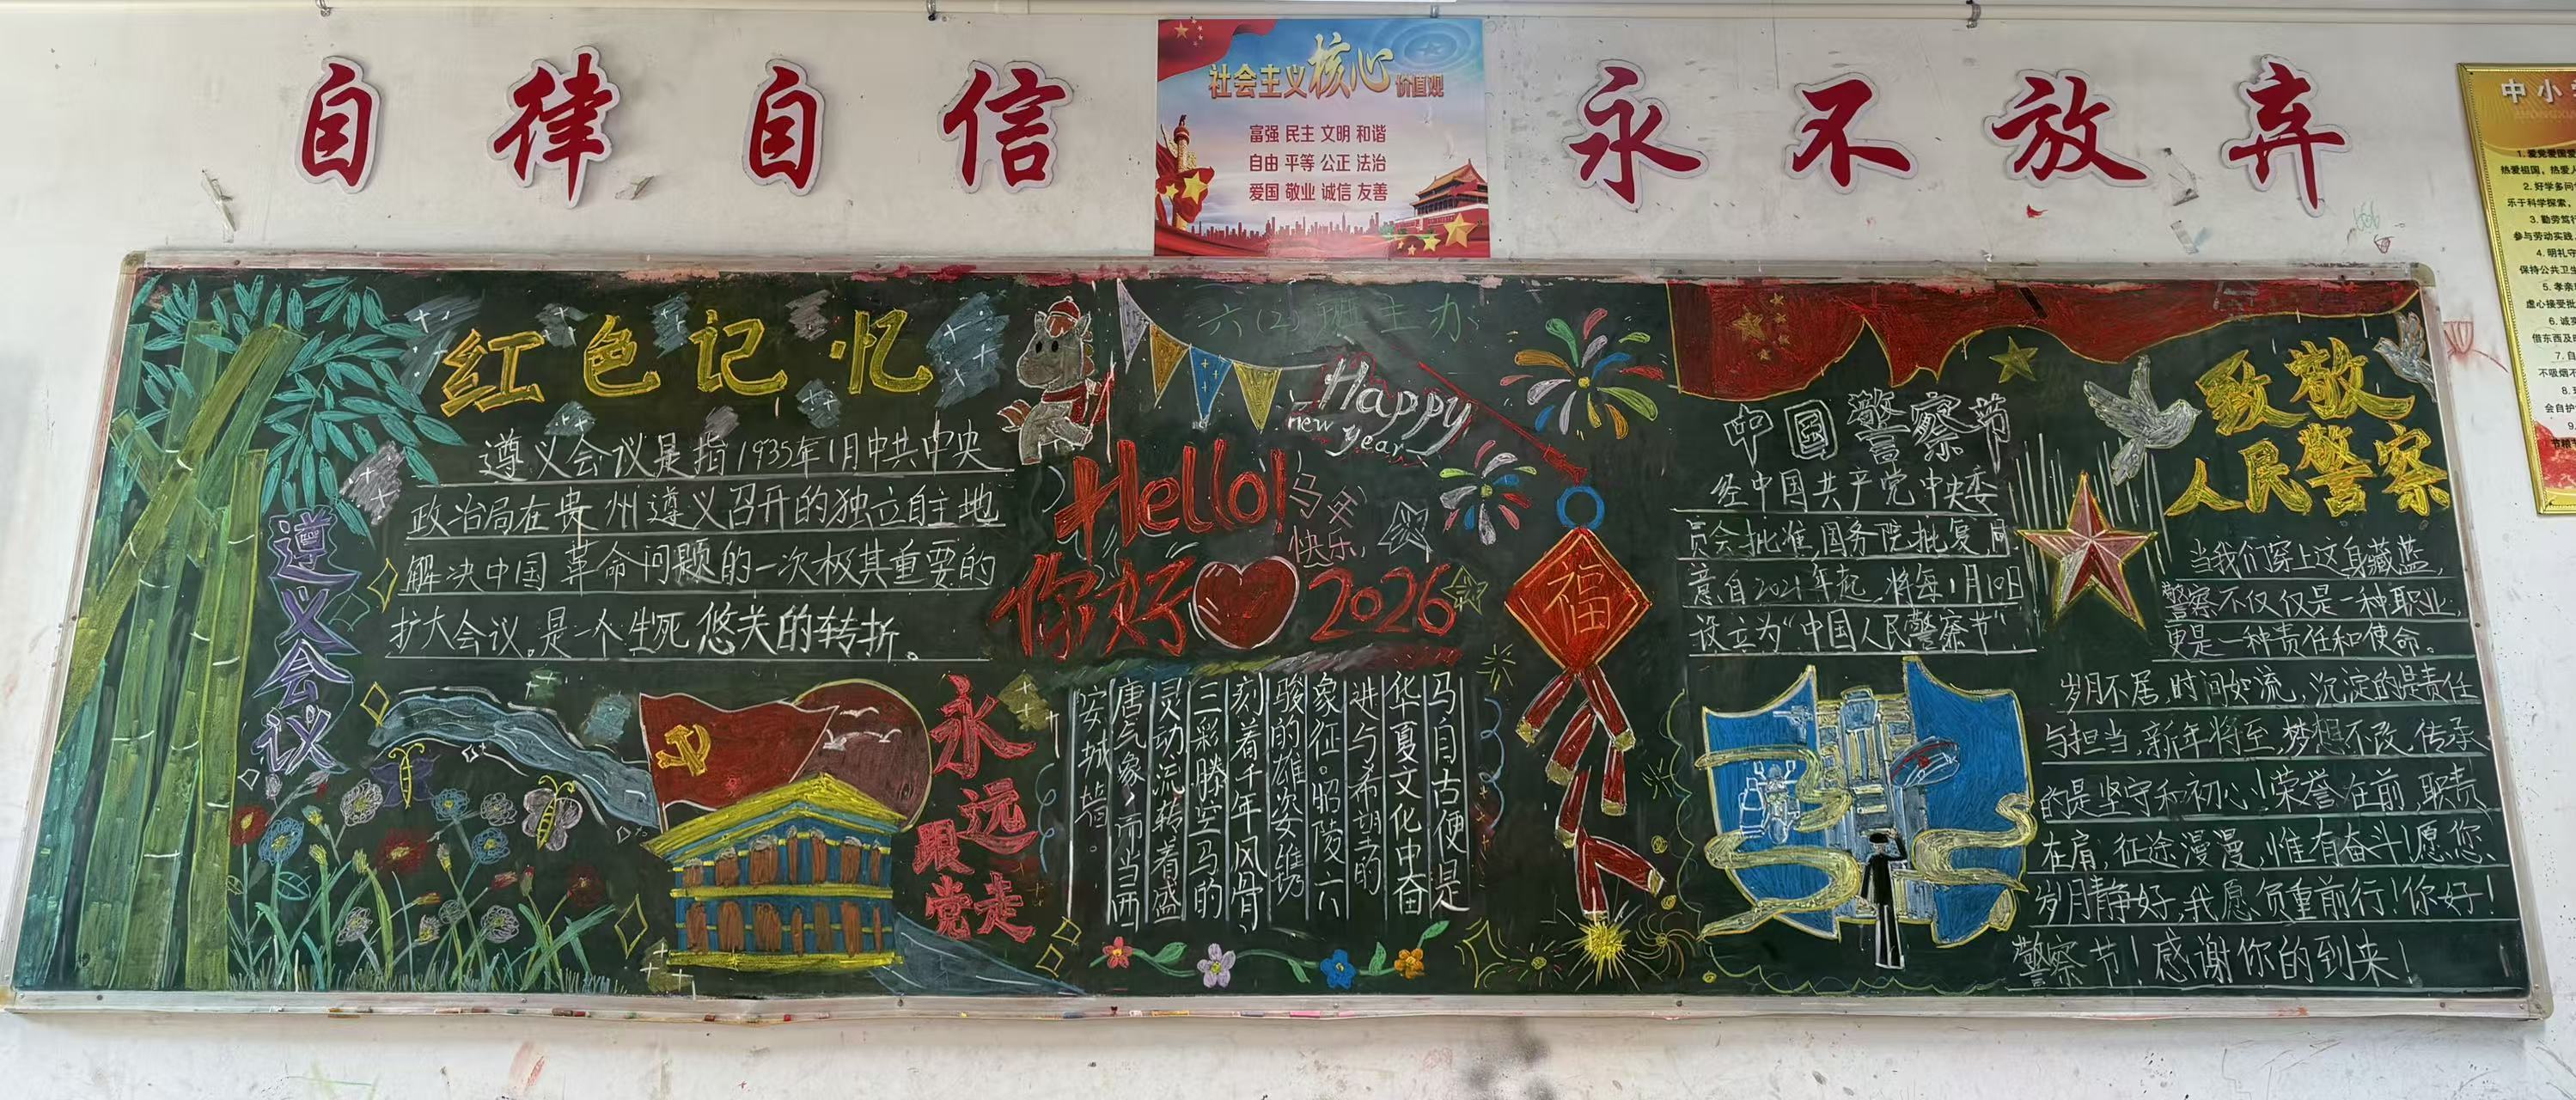 自律自信
社会主义核心价值观
富强 民主 文明 和谐
自由 平等 公正 法治
爱国 敬业 诚信 友善
永不放弃
中小学
1. 爱党爱国爱
热爱祖国，热爱人
2. 好学多问
乐于科学探索，
3. 勤劳笃行
参与劳动实践，
4. 明礼守
保持公共卫生
5. 孝亲
虚心接受批
6. 诚实
借东西及时
7. 自
不吸烟不
8. 珍
会自护
9.
节粮节
红色记忆
遵义会议是指1935年1月中共中央
政治局在贵州遵义召开的独立自主地
解决中国革命问题的一次极其重要的
扩大会议。是一个生死悠关的转折。
遵义会议
永远
跟党走
六(2)班主办
Happy
new year
Hello!
马年
快乐
你好 2026
福
马自古便是
华夏文化中奋
进与希望的
象征。昭陵六
骏的雄姿镌
刻着千年风骨
三彩腾空马的
灵动流转着盛
唐气象，而当西
安城墙
中国警察节
经中国共产党中央委
员会批准,国务院批复,同
意自2021年起,将每1月10日
设立为"中国人民警察节"
致敬
人民警察
当我们穿上这身藏蓝,
警察不仅仅是一种职业,
更是一种责任和使命。
岁月不居,时间如流,沉淀的是责任
与担当,新年将至,梦想不改,传承
的是坚守和初心!荣誉在前,职责
在肩,征途漫漫,惟有奋斗!愿您
岁月静好,我愿负重前行!你好!
警察节!感谢你的到来!